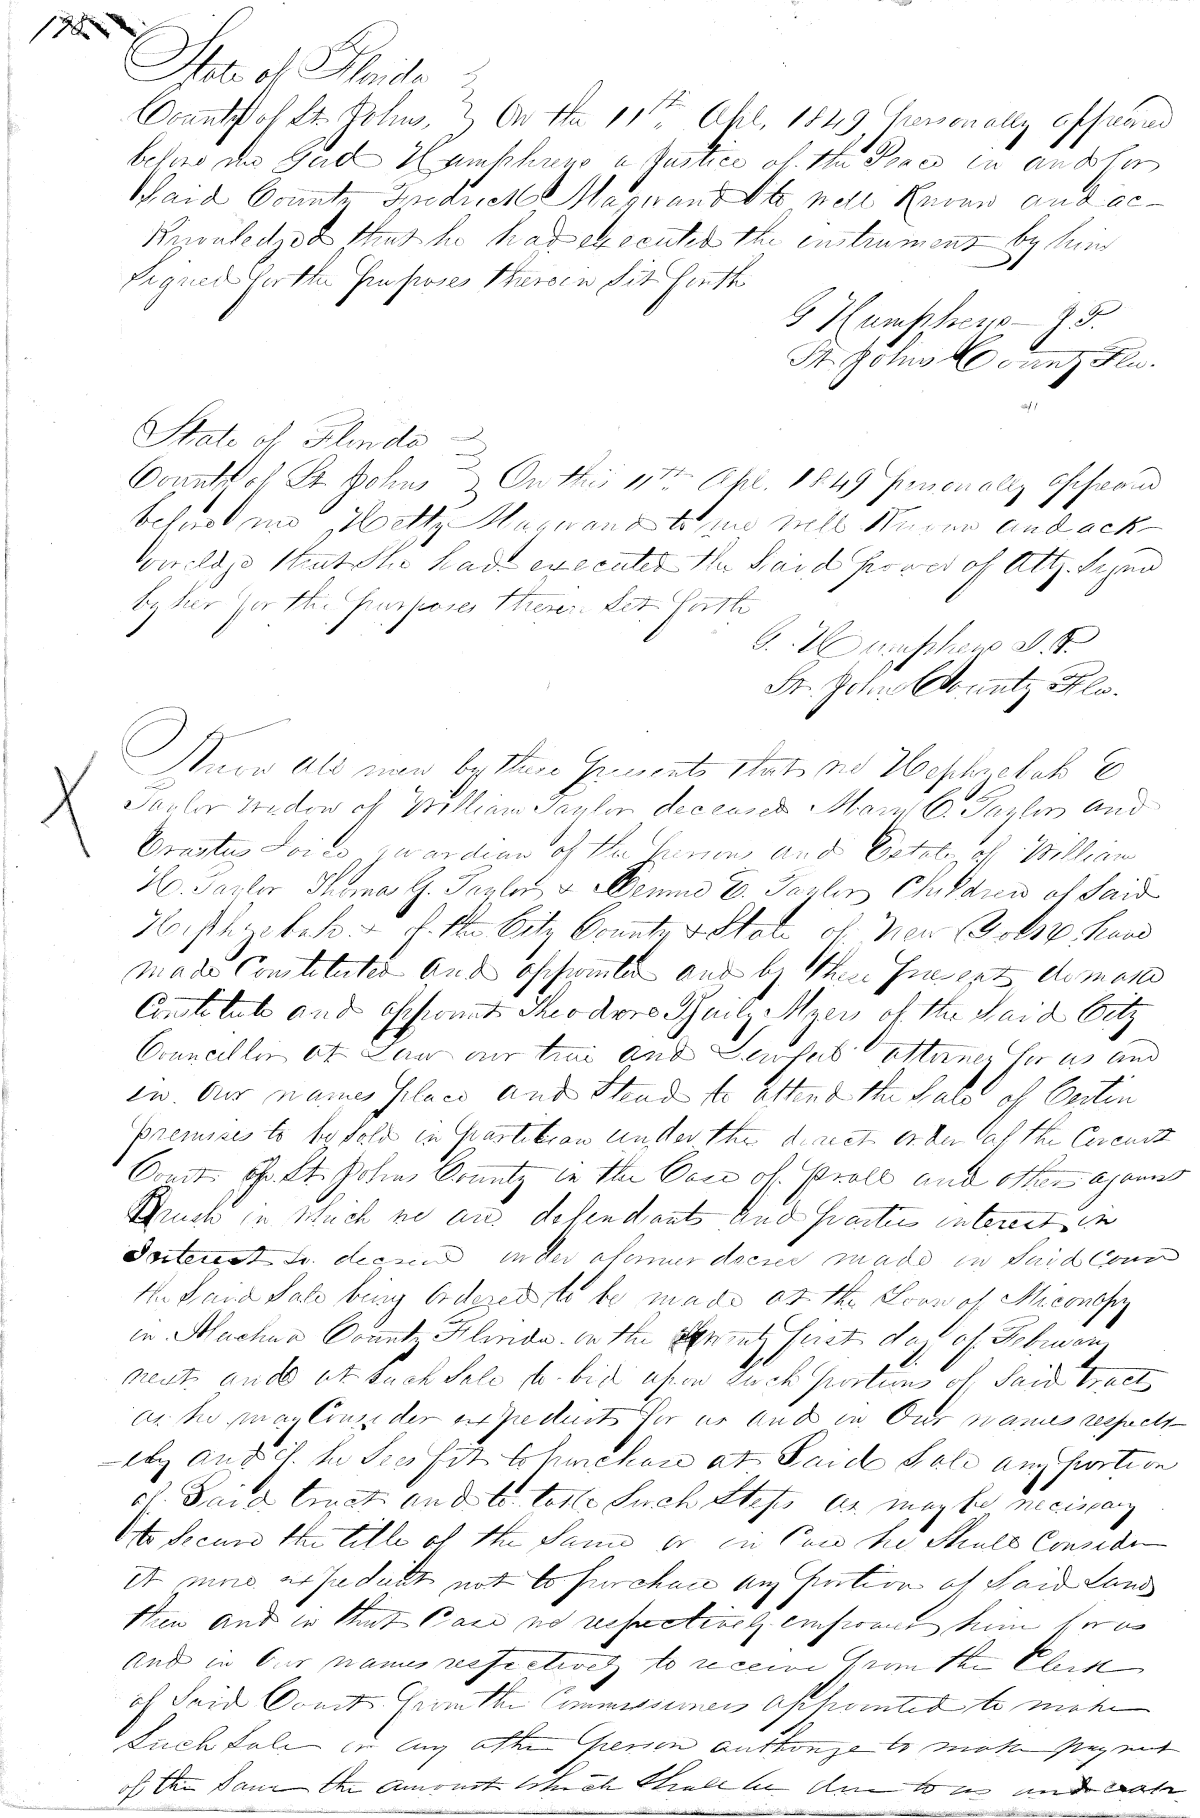 198
State of Florida
County of St. Johns, } On the 11th. Apl. 1849 personally appeared
before me Gad Humphreys a Justice of the Peace in and for
Said County Fredrick Magwand to well Known and ac-
Knowledged that he had executed the instrument by him
Signed for the purposes therein Set forth
G Humphreys - J. P.
St. Johns County Fla.
State of Florida
County of St Johns } On this 11th Apl. 1849 personally appeard
before me Hetty Magwand to me well Known and ack
woreldge that She had executed the Said power of Atty. Signd
by her for the purposes therein Set forth
G. Humphreys J. P.
St. Johns County Fla.
X
Know all men by these presents that we Hephzebah E
Taylor Widow of William Taylor deceased Mary C. Taylor and
Erastus guardian of the persons and Estate of William
H. Taylor Thomas G. Taylor & E. Taylor Children of Said
Hephzebah & of the City County & State of New York, have
made Constituted and appointed and by these presents do make
Constitute and appoint Theodore Baily Myers of the Said City
Councillor at Law our true and Lawful attorney for us and
in Our names place and Stead to attend the Sale of Certin
premises to be Sold in partition under the direct order of the Circuit
Court of St. Johns County in the Case of and others against
Brush in which we are defendants and parties interest in
Interest so under a former decree made in Said Court
the Said Sale being Ordered to be made at the Town of Miconopy
in Alachua County Florida on the first day of February
next and at Such Sale to bid upon Such portions of Said tract
as he may Consider expedient for us and in Our names respect
-ely and if he Sees fit to purchase at Said Sale any portion
of Said tract and to take Such Steps as may be necissary
to Secure the title of the Same or in Case he Shall Consider
it more expedient not to purchase any portion of Said Land
then and in that Case we respectively empower him for us
and in Our names respectively to receive from the Clerk
of Said Court from the Commissioners appointed to make
Such Sale or any other person authorize to make payment
of the Same the amount which Shall be due to us and each